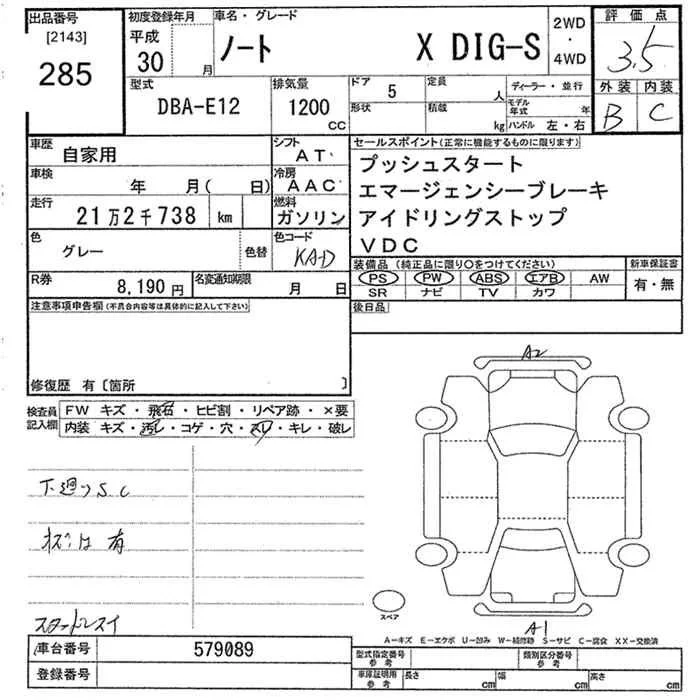 出品番号
[2143]
285
初度登録年月
平成
30 月
車名・グレード
ノート X DIG-S
2WD
・
4WD
評価点
3.5
外装 内装
B C
型式
DBA-E12
排気量
1200
CC
ドア 5
形状
定員 人
積載 kg
ディーラー・並行
モデル年式 年
ハンドル 左・右
車歴
自家用
シフト
AT
車検
年 月( 日)
冷房
AAC
走行
21万2千738 km
燃料
ガソリン
色
グレー
色替
色コード
KAD
R券
8,190円
名変通知期限
月 日
セールスポイント(正常に機能するものに限ります)
プッシュスタート
エマージェンシーブレーキ
アイドリングストップ
VDC
装備品(純正品に限り○をつけてください)
PS PW ABS エアB AW
SR ナビ TV カワ
新車保証書
有・無
後日品
注意事項申告欄(不具合内容等は具体的に記入して下さい)
修復歴 有〔箇所 〕
検査員
記入欄
FW キズ・飛石・ヒビ割・リペア跡・×要
内装 キズ・汚レ・コゲ・穴・スリ・キレ・破レ
下廻りS、C
有
スタットレスイ
A2
スペア
A1
A-キズ E-エクボ U-凹み W-補修跡 S-サビ C-腐食 XX-交換済
車台番号 579089
登録番号
型式指定番号
参考
類別区分番号
参考
車庫証明用
参考
長さ cm
幅 cm
高さ cm